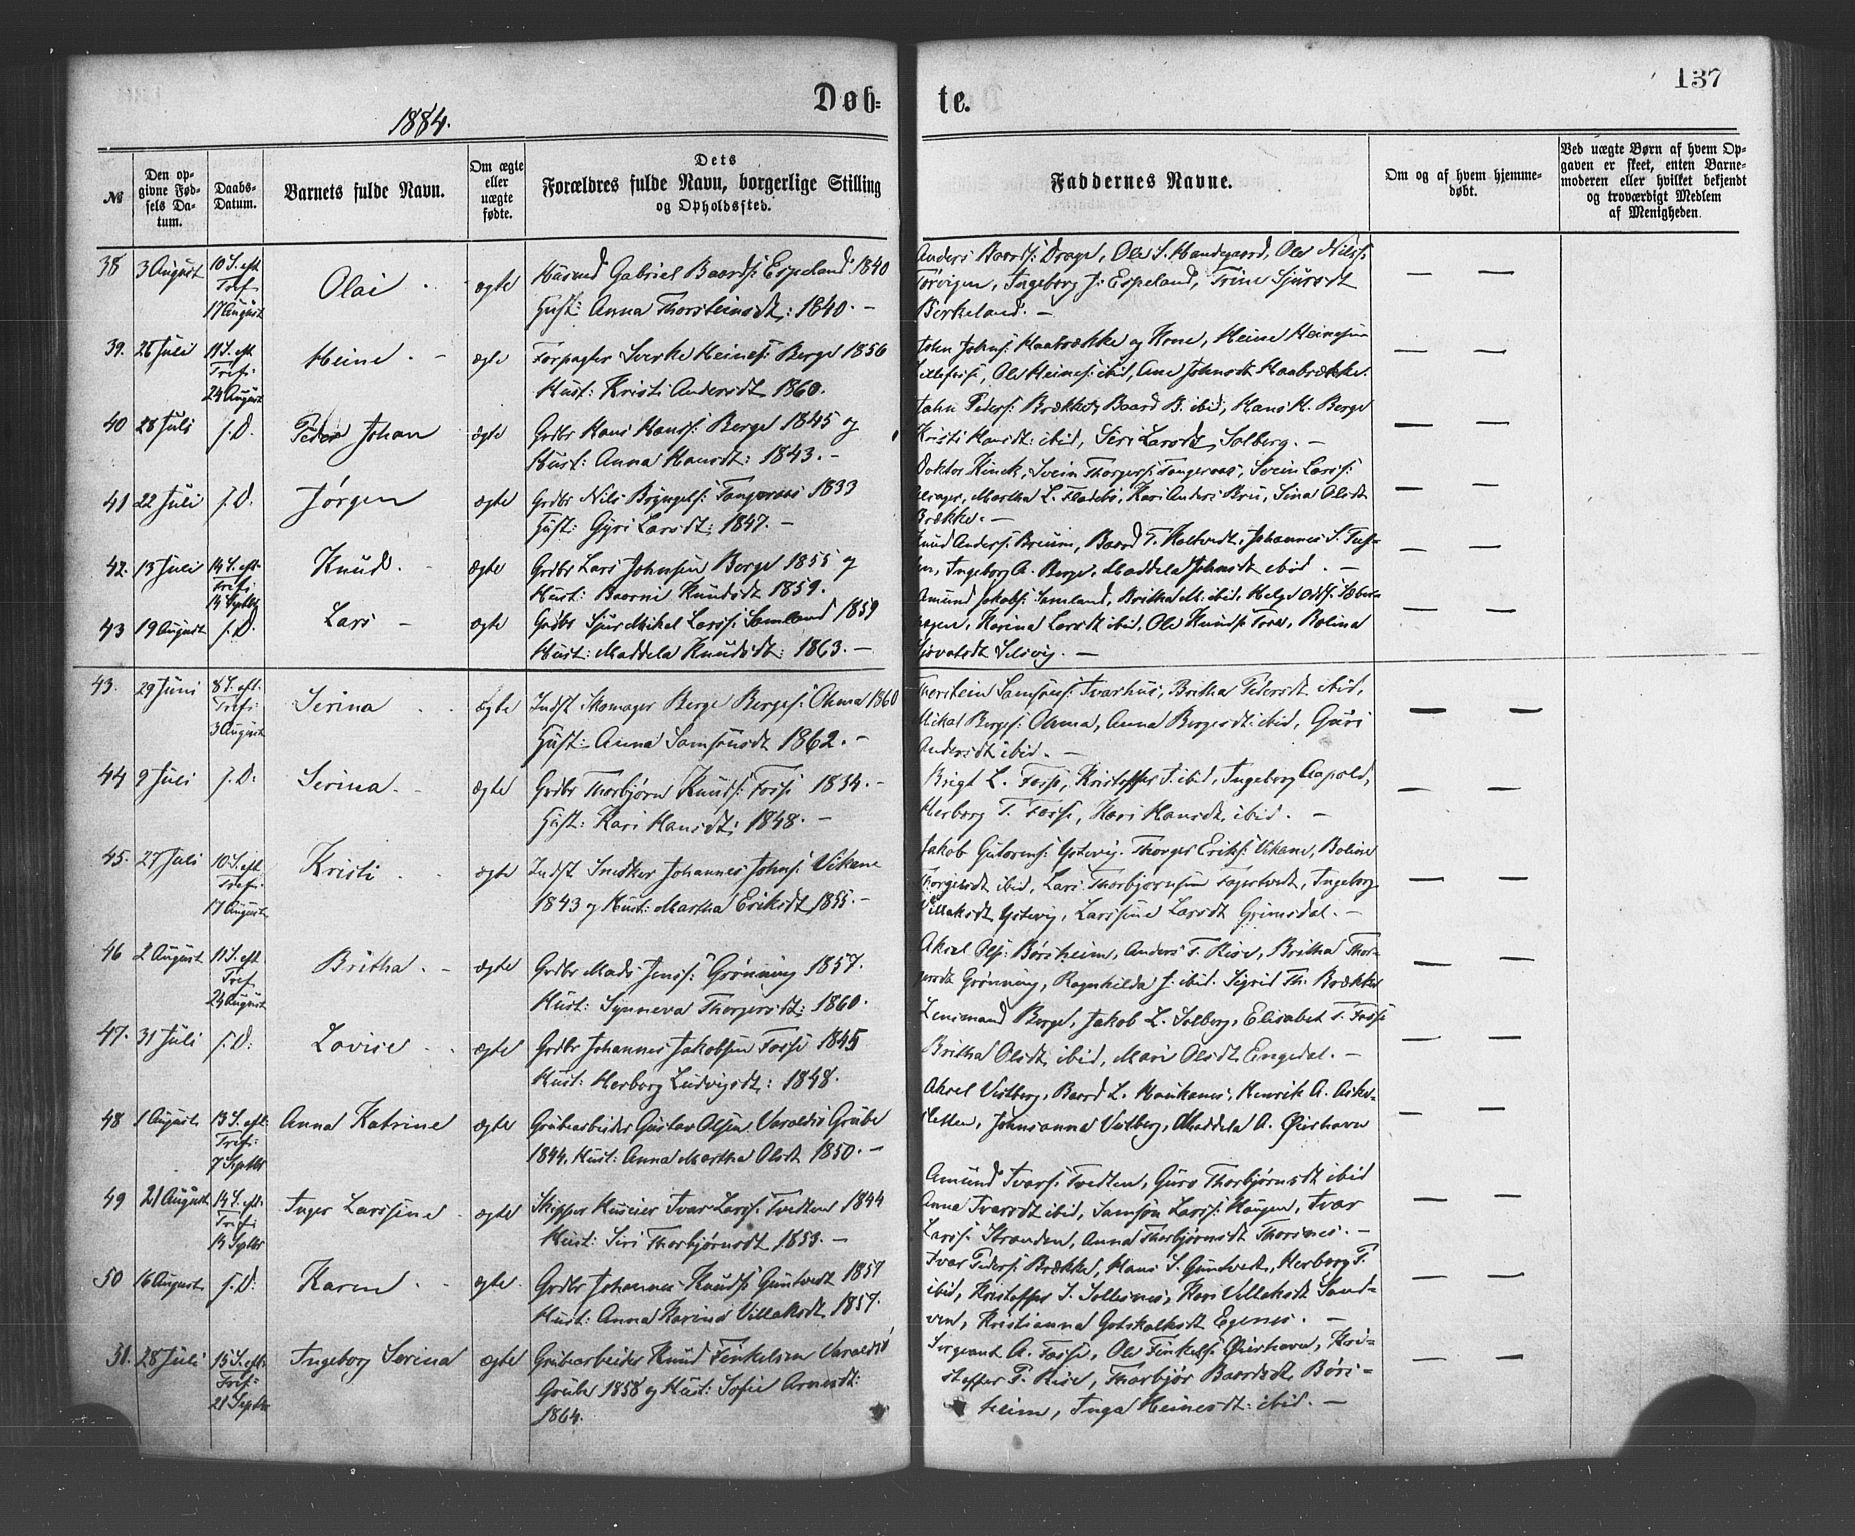 137
1884.
Døb-
te.
№
Den op-
givne Fød-
sels Da-
tum.
Daabs-
Datum.
Barnets fulde Navn.
Om ægte
eller
uægte
fødte.
Dets
Forældres fulde Navn, borgerlige Stilling
og Opholdssted.
Faddernes Navne.
Om og af hvem hjemme-
døbt.
Ved uægte Børn af hvem Op-
gaven er skeet, enten Barne-
moderen eller hvilket bekjendt
og troværdigt Medlem
af Menigheden.
38 3 August 10 S. eft. Tref. 17 August Olai ægte Husmd Gabriel Baards: Espeland 1840
Hust: Anna Thorsteinsdt: 1840. —
Anders Baards: Drage, Ole S. Handegaard, Ole Nilss:
Tørvigen, Ingeborg J: Espeland, Trine Sjursdt
Birkeland. —
39. 26 Juli 11 S. eft. Tref: 24 August Heine ægte Forpagter Sverke Heines: Berge 1856
Hust: Kristi Andersdt 1860.
John Johns: Kaabrække og Kone, Heine Heinesen
Ole Heines: ibid, Ane Johnsdt Kaabrække.
40 28 Juli s. D. Peder Johan ægte Grdbr Hans Hanss: Berge 1845 og
Hust: Anna Hansdt: 1843. —
John Peders: Brække, Baard B. ibid, Hans H. Berge
Kristi Hansdt: ibid, Siri Larsdt Solberg. —
41 22 Juli s. D. Jørgen ægte Grdbr Nils Bryngels: Tangeraas 1833
Hust: Gyri Larsdt: 1847. —
Doktor Kinck, Svein Thorgers: Tangeraas, Svein Larss:
Martha L. Fladebø, Kari Anders Bru, Sina Olsdt
Brække. —
42. 13 Juli 14 S. eft. Tref: 14 Septbr Knud. ægte Grdbr Lars Johnsen Berge 1855 og
Hust: Baarni Knudsdt 1859.
Knud Anders: Breum, Baard T. Holtvedt, Johannes S.
Ingeborg A. Berge, Maddela Johnsdt ibid. —
43 19 August s. D. Lars ægte Grdbr Sjur Mikal Larss: Samland 1859
Hust: Maddela Knudsdt: 1863. —
Amund Jakobs: Samland, Britha M. ibid, Helge Odss:
Karina Larsdt ibid, Ole Knuds: Tveo, Bolina
Selsvig. —
43. 29 Juni 8 S. eft. Tref: 3 August Serina ægte Indst Skomager Berge Berges: Okma 1860
Hust: Anna Samsonsdt 1862. —
Thorstein Samsons: Ivarhus, Britha Pedersdt ibid,
Mikal Berges: Okma, Anna Bergesdt: ibid, Guri
Andersdt ibid. —
44 9 Juli s. D. Serina ægte Grdbr Thorbjørn Knuds: Fosse 1834. —
Hust: Kari Hansdt: 1848. —
Brigt L. Fosse, Kristoffer T. ibid, Ingeborg Aapold,
Herborg T. Fosse, Kari Hansdt ibid. —
45. 27 Juli 10 S. eft. Tref: 17 August Kristi ægte Indst Snedker Johannes Johns: Vikane
1843 og Hust: Martha Eriksdt 1855. —
Jakob Gutorms: Ystevig, Thorger Eriks: Vikane, Boline
Thorgersdt ibid, Lars Thorbjørnsen Fagertvedt, Ingeborg
Villaksdt Ystevig, Larssine Larsdt Grimsdal. —
46 2 August 11 S. eft. Tref. 24 August Britha ægte Grdbr Mads Jenss: Grønning 1857.
Hust: Synneva Thorgersdt: 1860.
Aksel Ols: Børsheim, Anders T. Rise, Britha Thor-
gersdt Grønning, Ragnhilda J. ibid. Sigrid Th. Brække
47. 31 Juli s. D: Lovise ægte Grdbr Johannes Jakobsen Fosse 1845
Hust: Herborg Ludvigsdt: 1848.
Lensmand Berge, Jakob L. Solberg, Elisabet T. Fosse
Britha Olsdt ibid, Mari Olsdt Engedal. —
48 1 August 13 S. eft. Tref: 7 Septbr Anna Katrine ægte Grubearbeider Gustav Olsen Varaldsø Grube
1844, Hust: Anna Martha Olsdt 1850. —
Aksel Vedberg, Baard L. Haukanes, Henrik A. Aske-
Johnsanna Vedberg, Maddela A. Øirehavn
49 21 August 14 S. eft. Tref: 14 Septbr Inger Larssine ægte Skipper Huseier Ivar Larss: Tvedten 1844
Hust: Siri Thorbjørnsdt 1853. —
Amund Ivars: Tvedten, Guro Thorbjørnsdt ibid
Anna Ivarsdt ibid, Samson Larss: Haugen, Ivar
Larss: Stranden, Anna Thorbjørnsdt Thorsnes. —
50 16 August s. D. Karen ægte Grdbr Johannes Knuds: Guntvedt 1857
Hust: Anna Karina Villaksdt 1857.
Ivar Peders: Brække, Hans S. Guntvedt, Herborg T.
ibid, Kristoffer S. Sollesnes, Kari Villaksdt Sand-
ven, Kristianna Gotskalksdt Egenes. —
31. 28 Juli 15 S. eft. Tref: 21 Septbr Ingeborg Serina ægte Grubearbeider Knud Finkelsen Varaldsø
Grube 1858 og Hust: Sofie Arnesdt:
1864.
Sergeant A. Fosse, Ole Finkels: Øirehavn, Kri-
stoffer P. Rise, Thorbjør Baardsdt Børs-
heim, Inga Heinesdt: ibid. —